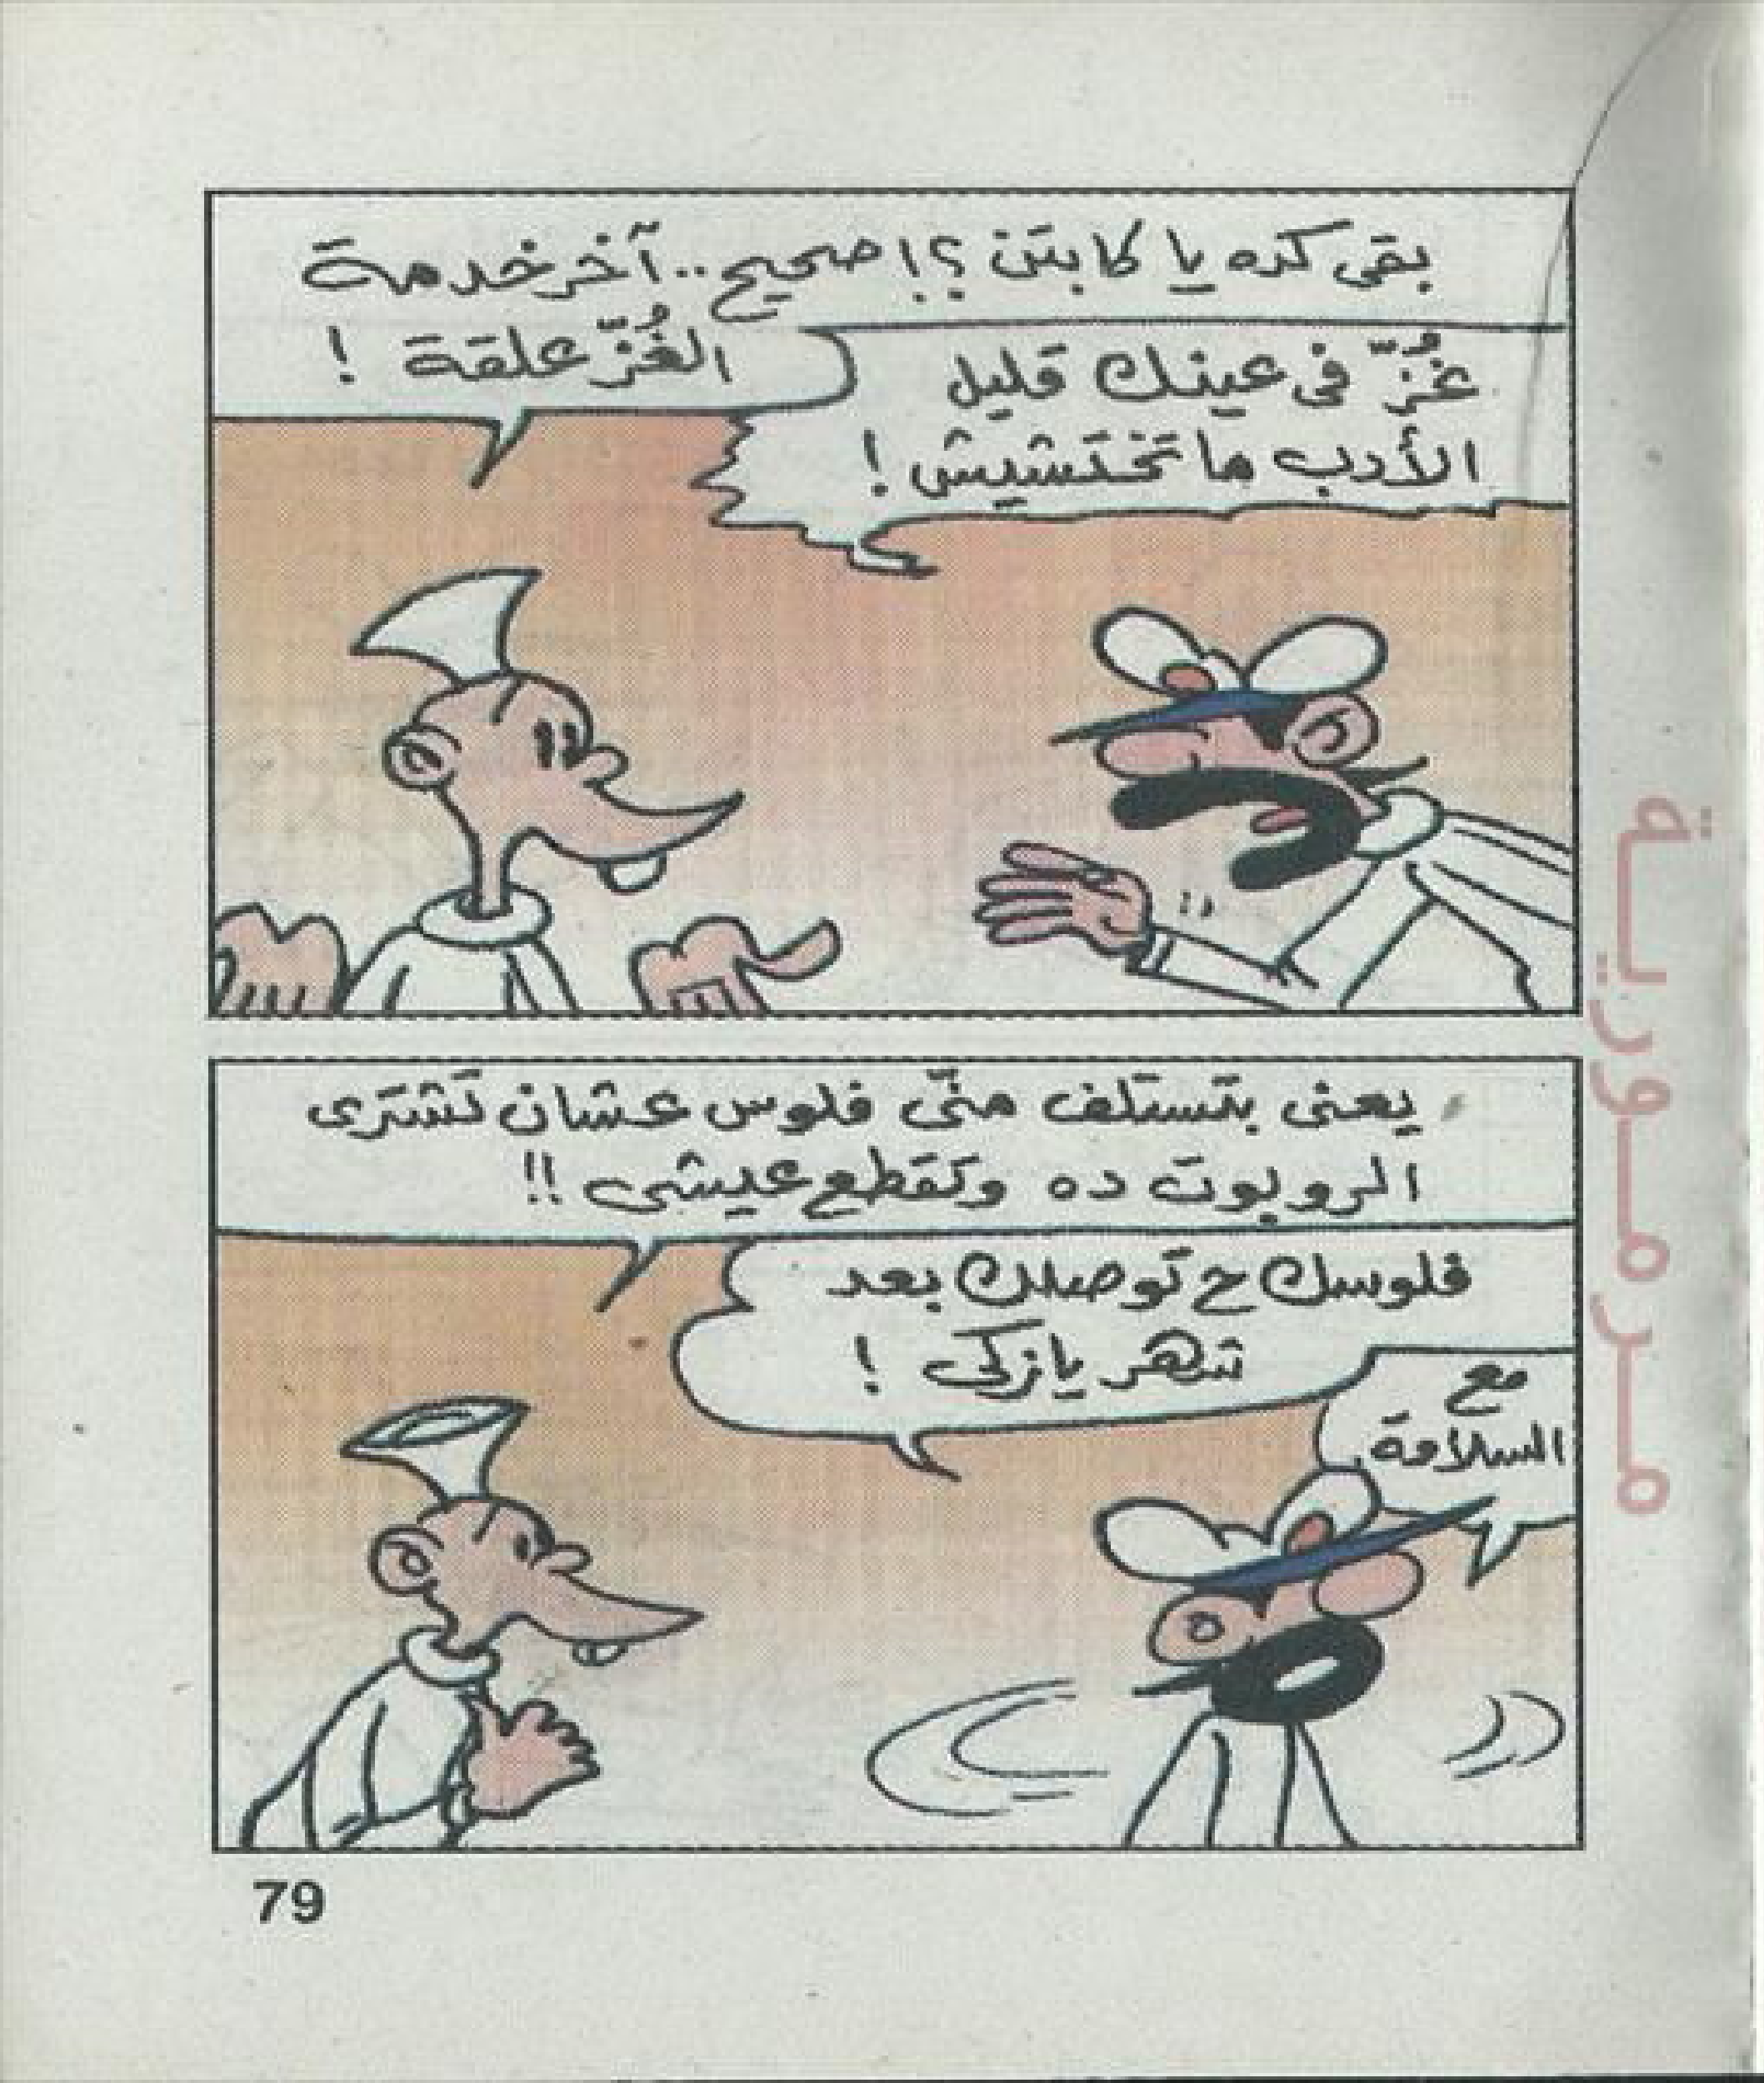 بقى كده يا كابتن ؟! صحيح.. آخر خدمة
الغُزّ علقة !
غُزّ فى عينك قليل
الأدب ما تختشيش !
يعنى بتستلف منّى فلوس عشان تشترى
الروبوت ده وتقطع عيشى !!
فلوسك ح توصلك بعد
شهر يا زكى !
مع
السلامة
79
مرمورية